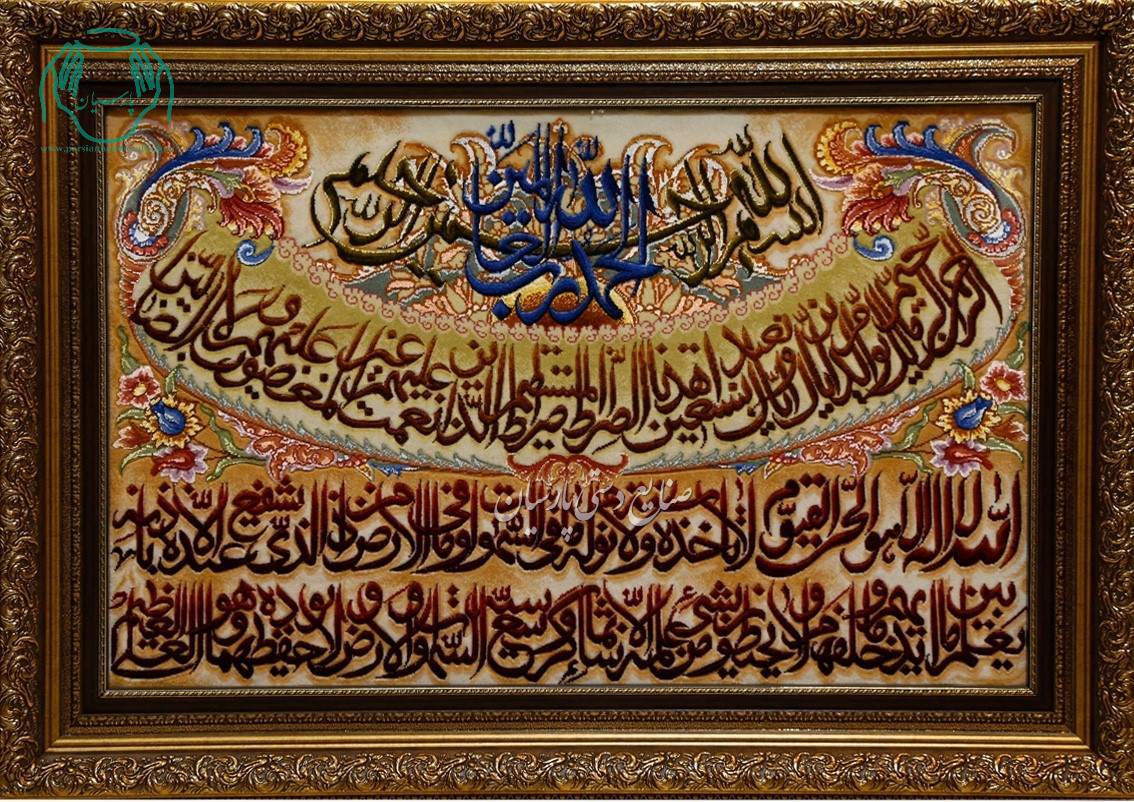 پارسیان
بسم الله الرحمن الرحیم
الحمد لله رب العالمین
الرحمن الرحیم مالک یوم الدین ایاک نعبد و ایاک نستعین اهدنا الصراط المستقیم صراط الذین انعمت علیهم غیر المغضوب علیهم و لا الضالین
صنایع دستی پارسیان
الله لا اله الا هو الحی القیوم لا تاخذه سنة و لا نوم له ما فی السموات و ما فی الارض من ذا الذی یشفع عنده الا باذنه
یعلم ما بین ایدیهم و ما خلفهم و لا یحیطون بشیء من علمه الا بما شاء وسع کرسیه السموات و الارض و لا یوده حفظهما و هو العلی العظیم